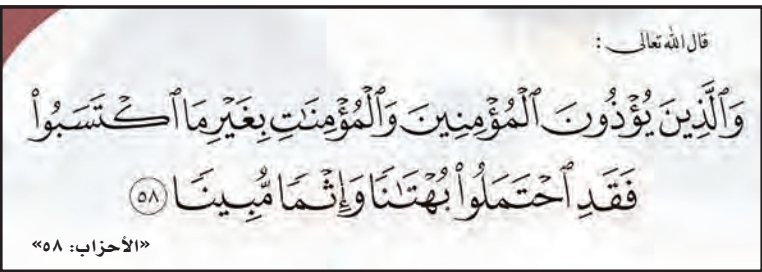 قال الله تعالى :
وَٱلَّذِينَ يُؤْذُونَ ٱلْمُؤْمِنِينَ وَٱلْمُؤْمِنَٰتِ بِغَيْرِ مَا ٱكْتَسَبُوا۟
فَقَدِ ٱحْتَمَلُوا۟ بُهْتَٰنًا وَإِثْمًا مُّبِينًا ٥٨
«الأحزاب: ٥٨»